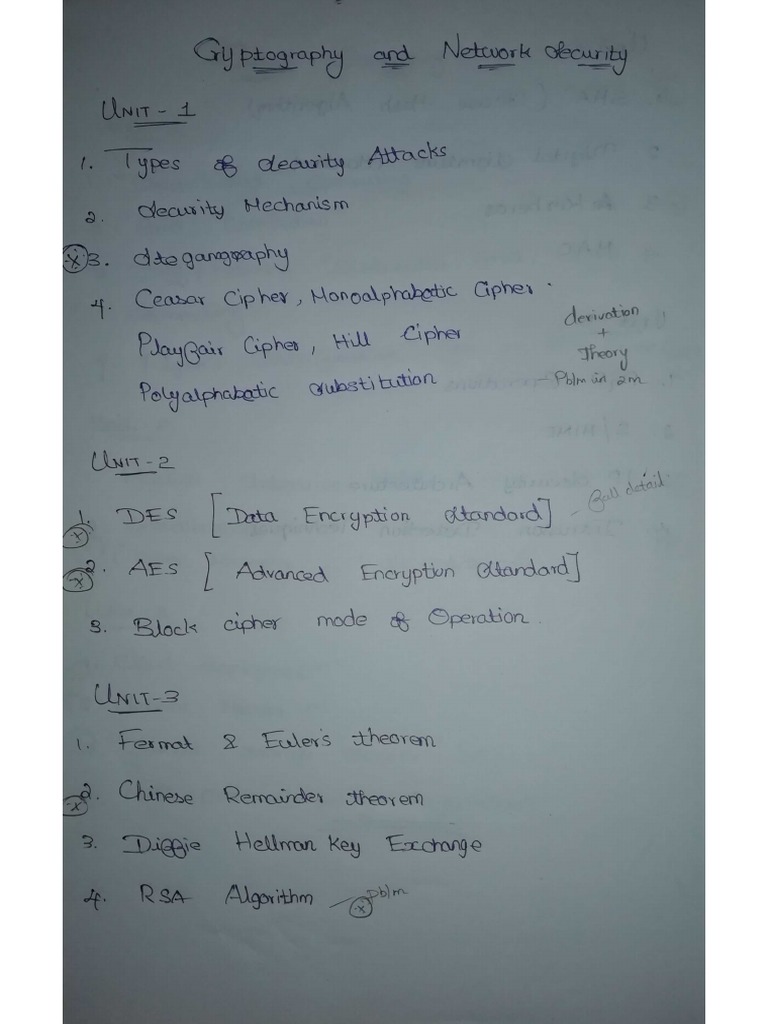 Cryptography and Network Security
UNIT - 1
1. Types of Security Attacks
2. Security Mechanism
(x) 3. Steganography
4. Ceasar Cipher, Monoalphabetic Cipher.
Playfair Cipher, Hill Cipher
Polyalphabetic Substitution
derivation
+
Theory
- Pblm in 2m
UNIT - 2
(x) 1. DES [Data Encryption Standard] - full detail
(x) 2. AES [Advanced Encryption Standard]
3. Block cipher mode of Operation.
UNIT-3
1. Fermat & Euler's theorem
(x) 2. Chinese Remainder theorem
3. Diffie Hellman Key Exchange
4. RSA Algorithm - (x) pblm